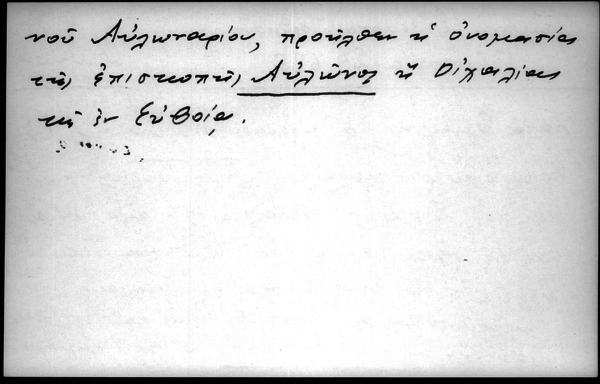 νοῦ Αὐλωναρίου, προῆλθεν ἡ ὀνομασία
τῆς ἐπισκοπῆς Αὐλῶνος ἢ Οἰχαλίας
τῆς ἐν Εὐβοίᾳ.